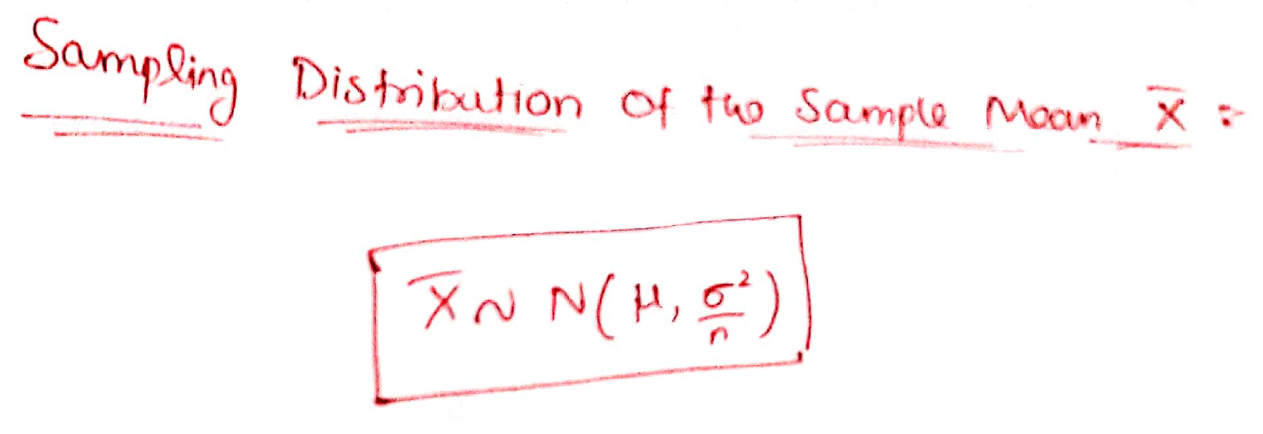 Sampling Distribution of the Sample Mean X̅ :-
X̅ ~ N(μ, σ²/n)